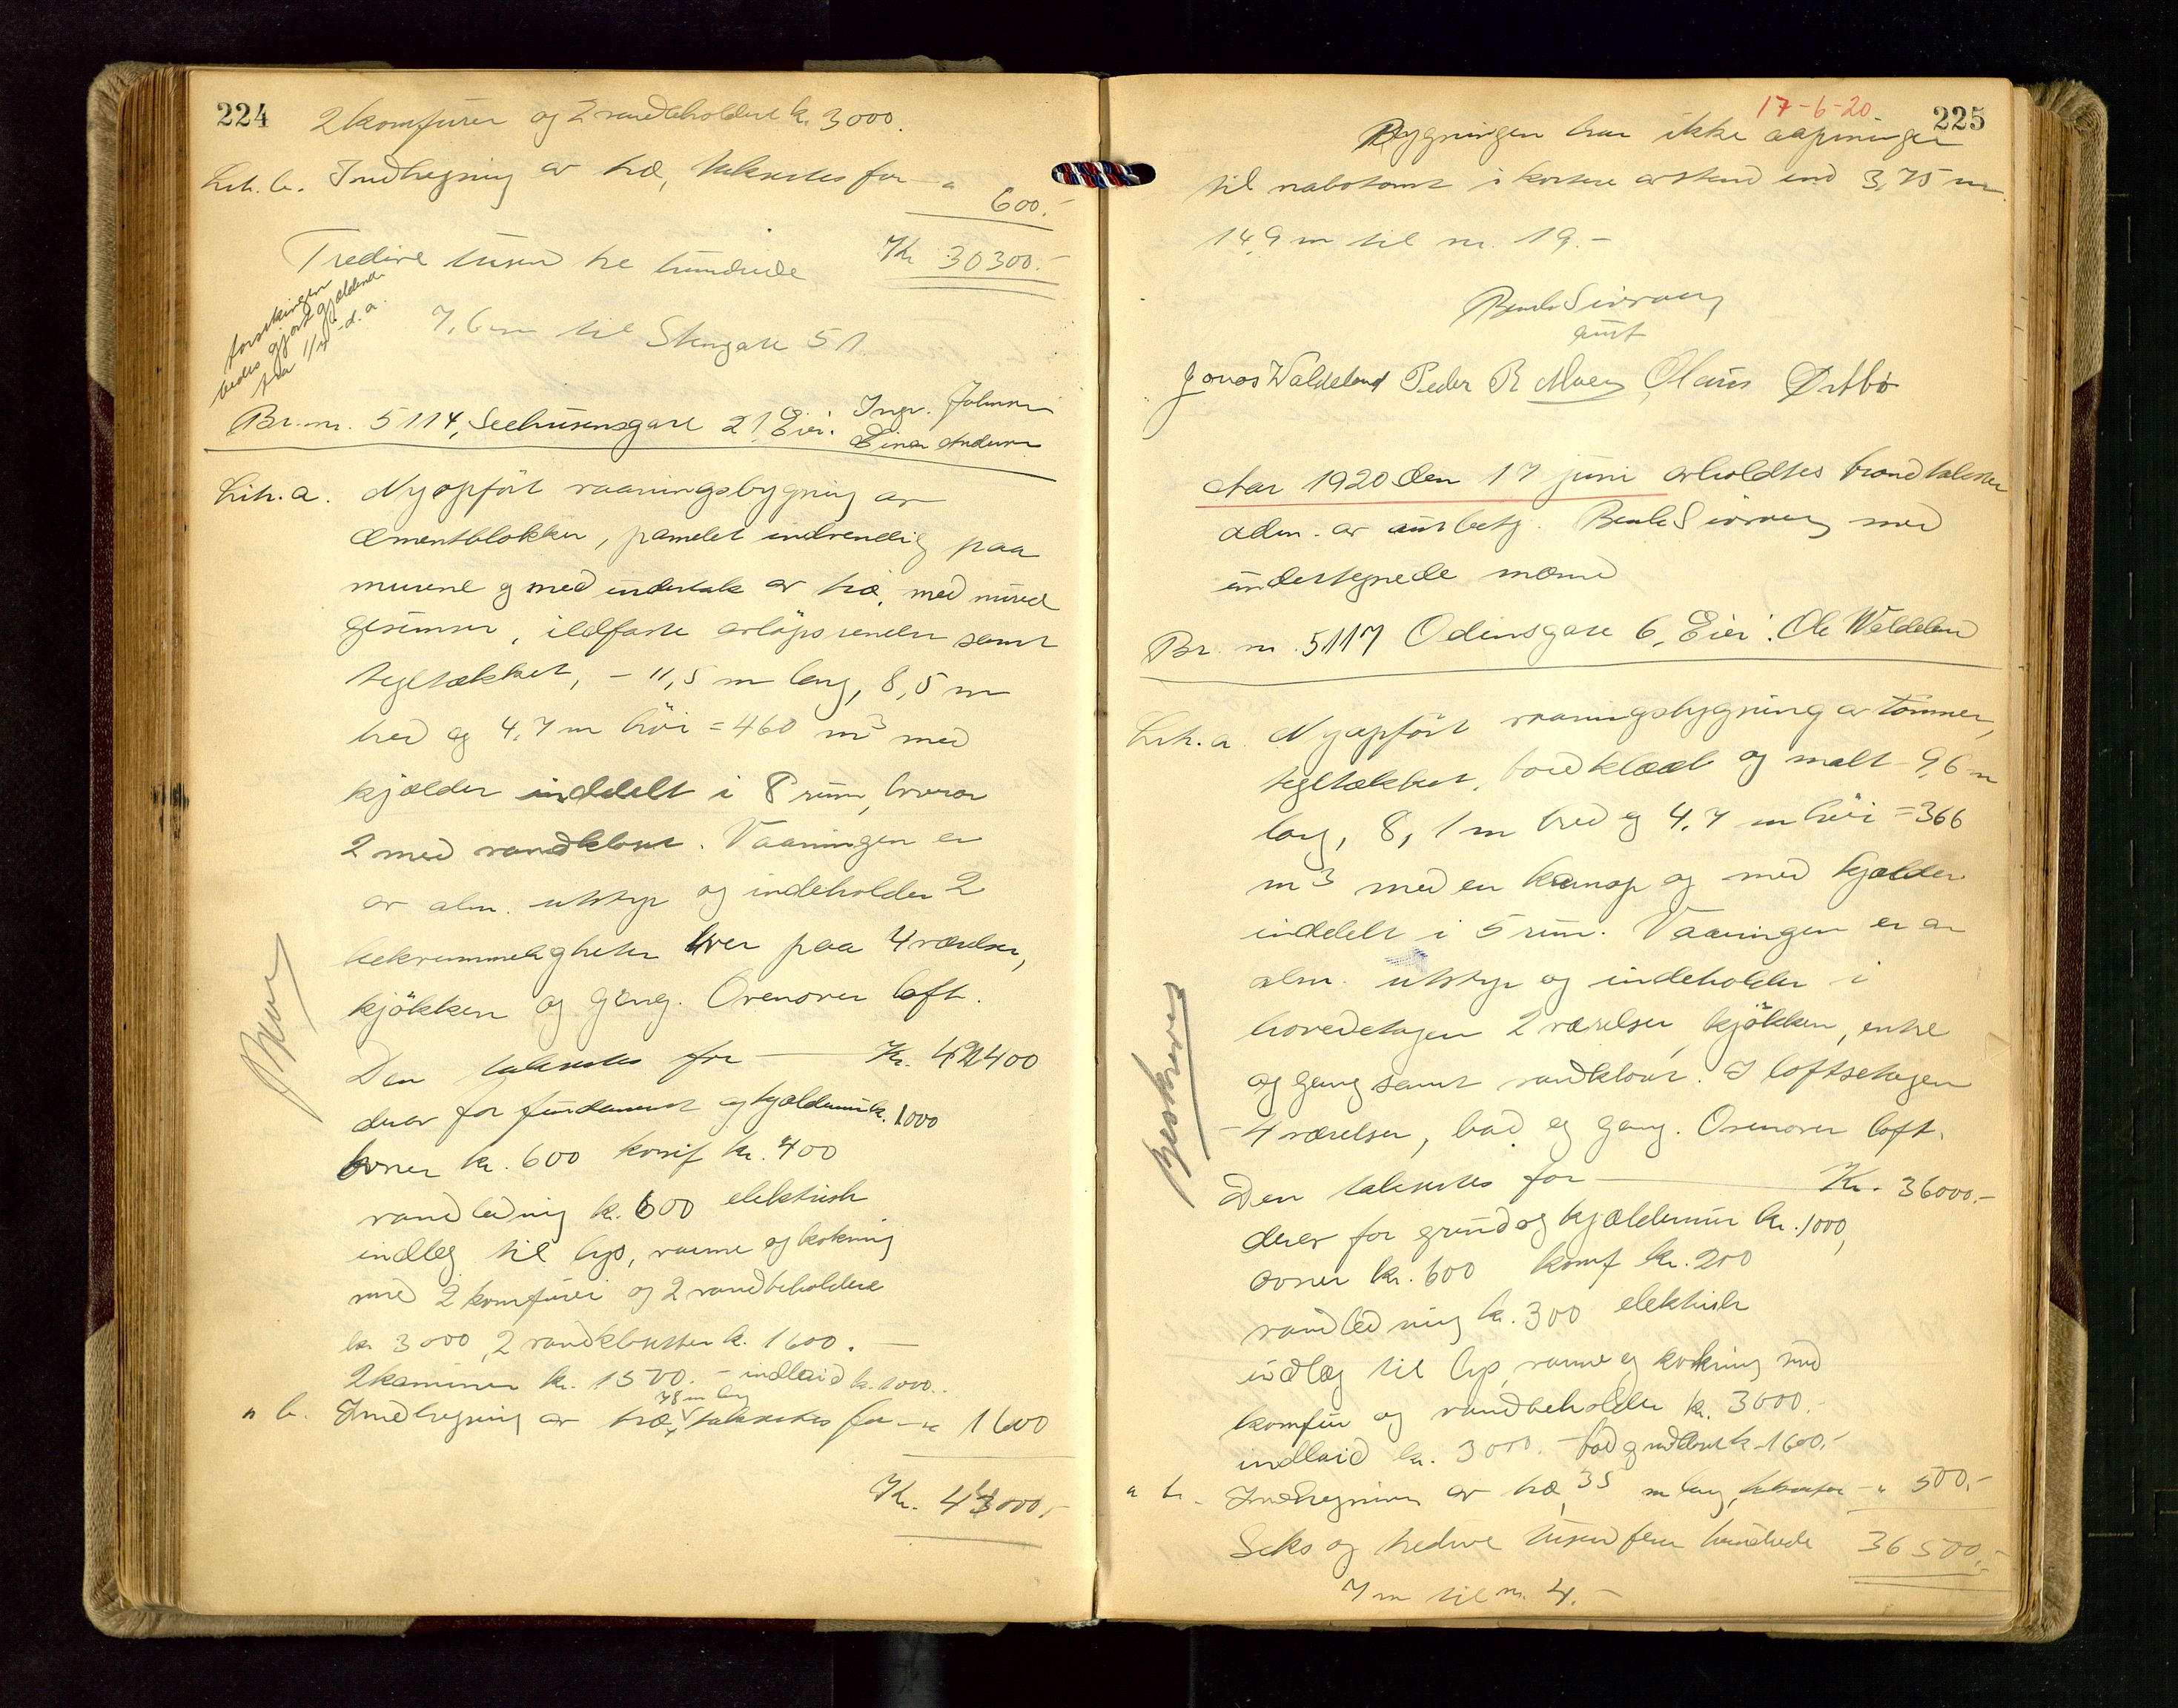 224
2 komfurer og 2 vandbeholdere kr. 3000.
Lit. b. Indhegning av træ, taksertes for - " 600.-
Tredive tusen tre hundrede Kr 30300.-
forsikringen
bedes gjort gjældende
fra 11/4 d. a.
7,6 m til Stengate 51.
Br. nr. 5114, Seehusensgate 21. Eier: Ingv. Johnsen
Einar Andersen
Lit. a. Nyopført vaaningsbygning av
cementblokker, panelet indvendig paa
murene og med undertak av træ, med muret
gesimser, ildfaste avløpsrender samt
tegltækket, - 11,5 m lang, 8,5 m
bred og 4,7 m høi = 460 m3 med
kjælder inddelt i 8 rum, hvorav
2 med vandkloset. Vaaningen er
av alm. utstyr og indeholder 2
bekvemmeligheter hver paa 4 værelser,
kjøkken og gang. Ovenover loft.
Den taksertes for — Kr. 42400
derav for fundament og kjældermur kr. 1000
ovner kr. 600 komf kr. 400
vandledning kr. 600 elektrisk
indlæg til lys, varme og kokning
med 2 komfurer og 2 vandbeholdere
kr 3000, 2 vandklosetter kr. 1600. —
2 kaminer kr. 1500. - indlaid kr. 1000.
78 m lang
" b. Indhegning av træ, taksertes for - " 1600
Kr. 44000.-
17-6-20
225
Bygningen har ikke aapninger
til nabotomt i kortere avstand end 3,75 m.
14,9 m til nr. 19. -
Bendt Sivertsen
amt
Jonas Waldeland Peder R. Moen, Olaus Østbø
Aar 1920 den 17 juni avholdtes brandtakster
adm. av amtbetj. Bendt Sivertsen med
undertegnede mænd
Br. nr. 5117 Odinsgate 6, Eier: Ole Waldeland
Lit. a Nyopført vaaningsbygning av tømmer,
tegltækket, bordklædt og malt - 9,6 m
lang, 8,1 m bred og 4,7 m høi = 366
m3 med en karnap og med kjælder
inddelt i 5 rum. Vaaningen er av
alm. utstyr og indeholder i
hovedetagen 2 værelser, kjøkken, entre
og gang samt vandkloset. I loftsetagen
- 4 værelser, bad og gang. Ovenover loft.
Den taksertes for — Kr. 36000.-
derav for grund og kjældermur kr. 1000,
ovner kr. 600 komf kr. 200
vandledning kr. 300 elektrisk
indlæg til lys, varme og kokning med
komfur og vandbeholder kr. 3000.-
indlaid kr. 3000. - bad og vandkloset kr 1600.-
" b. Indhegning av træ, 35 m lang, takseres for - " 500.-
Seks og tredive tusen fem hundrede 36500.-
7 m til nr. 4. -
Beskrevet